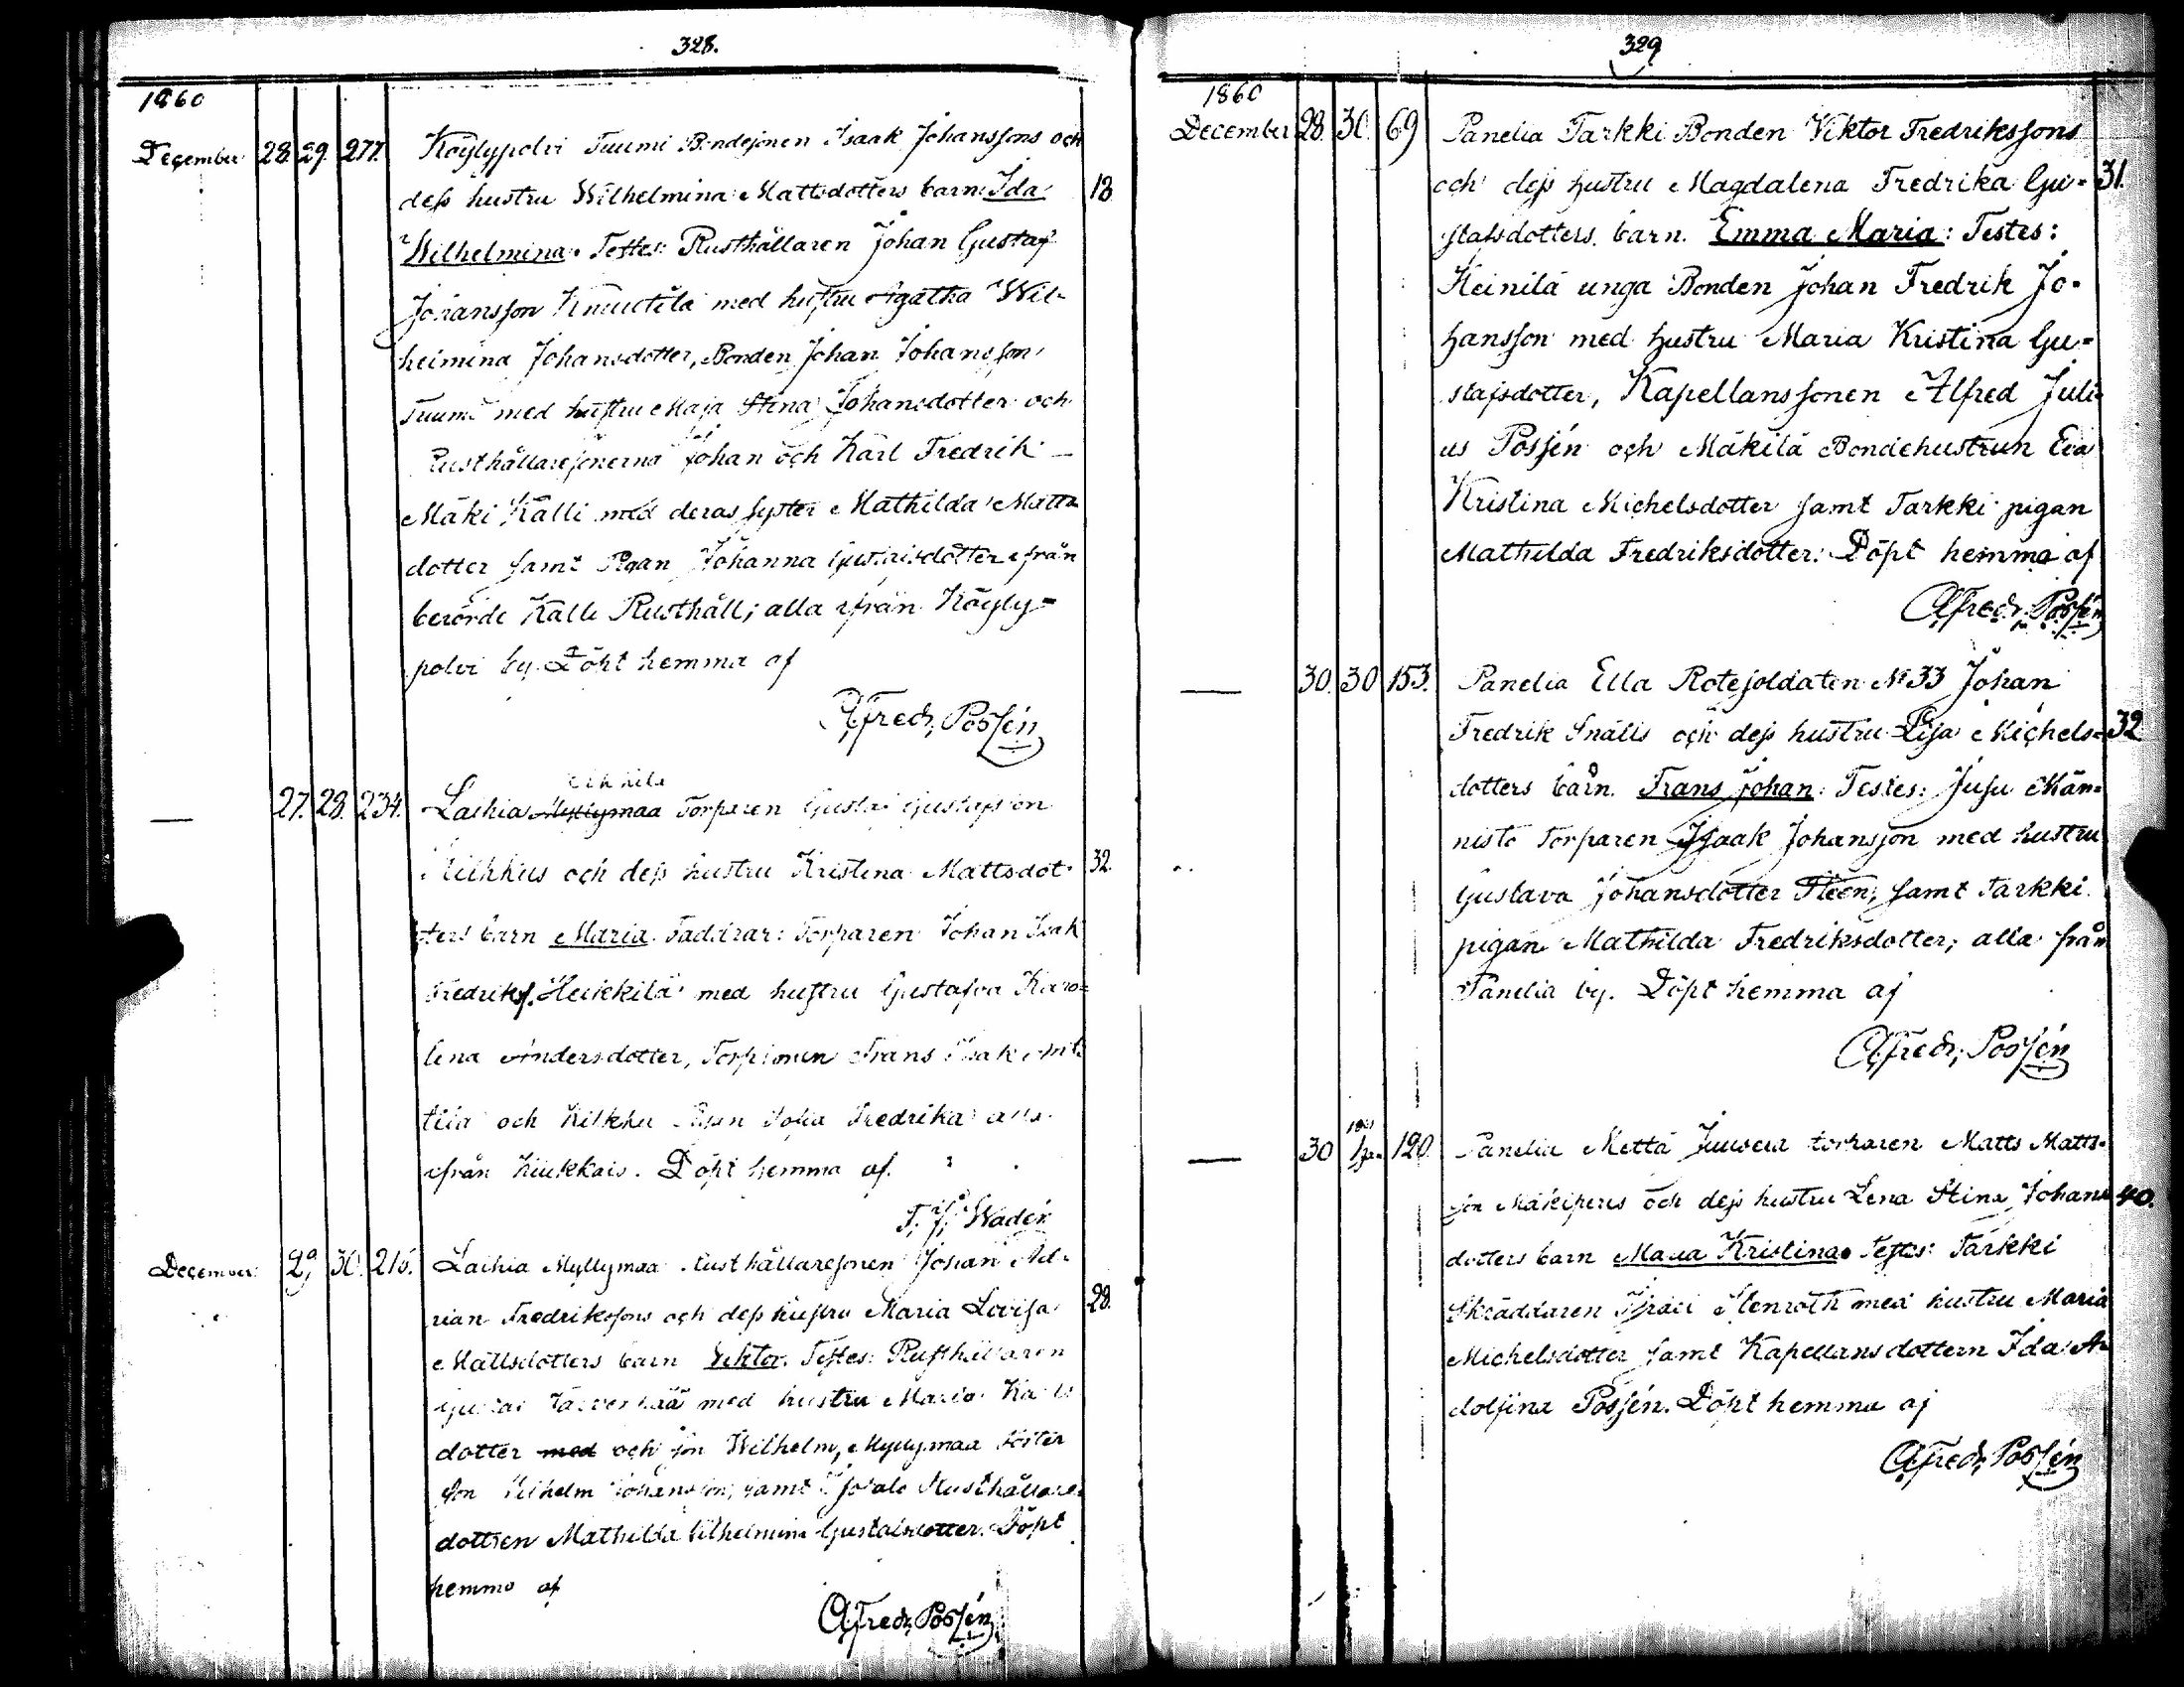 328.
1860
December 28. 29. 277. Köylypolvi Tuumi Bondesonen Isaak Johanssons och
dess hustru Wilhelmina Mattsdotters barn Ida 18
Wilhelmina. Testes: Rusthållaren Johan Gustaf
Johansson Knuutila med hustru Agatha Wil-
helmina Johansdotter, Bonden Johan Johansson
Tuumi med hustru Maja Stina Johansdotter och
Rusthållaresönerna Johan och Karl Fredrik
Mäki Källi med deras syster Mathilda Matts
dotter samt Pigan Johanna Gustafsdotter från
berörde Källi Rusthåll; alla från Köyly-
polvi by. Döpt hemma af
Alfredr. Possén
27. 28. 234. Laihia Myllymaa Torparen Gustaf Gustafsson
Kiikkus och dess hustru Kristina Mattsdot- 32.
ters barn Maria. Faddrar: Torparen Johan Isak
Fredriks. Heikkilä med hustru Gustafva Karo-
lina Andersdotter, Frans Isak
tila och Kiikku Pigan Sofia Fredrika alla
från Kiukkais. Döpt hemma af.
F. J. Wadén
December 29 30. 216. Laihia Myllymaa Rusthållaresonen Johan Ad-
rian Fredrikssons och dess hustru Maria Lovisa 28.
Mattsdotters barn Viktor. Testes: Rusthållaren
Gustaf med hustru Maria Karls
dotter med och son Wilhelm, Myllymaa foster
son Wilhelm Johansson, samt Rusthållare-
dottren Mathilda Wilhelmina Gustafsdotter. Döpt
hemma af
Alfredr. Possén
329
1860
December 28. 30. 69 Panelia Tarkki Bonden Viktor Fredrikssons
och dess hustru Magdalena Fredrika Gu- 31.
stafsdotters barn. Emma Maria: Testes:
Heinilä unga Bonden Johan Fredrik Jo-
hansson med hustru Maria Kristina Gu-
stafsdotter, Kapellanssonen Alfred Juli-
us Possén och Mäkilä Bondehustrun Eva
Kristina Michelsdotter samt Tarkki pigan
Mathilda Fredriksdotter: Döpt hemma af
Alfredr. Possén
— 30. 30 153. Panelia Ella Rotesoldaten No 33 Johan
Fredrik Snälls och dess hustru Lisa Michels- 32
dotters barn. Frans Johan: Testes: Jusu Män-
nistö Torparen Isaak Johansson med hustru
Gustava Johansdotter Steen, samt Tarkki
pigan Mathilda Fredriksdotter; alla från
Panelia by. Döpt hemma af
Alfredr. Possén
— 30 1861 1 Jan 120. Panelia Mettä Juusela torparen Matts Matts-
son Mäkipers och dess hustru Lena Stina Johans 40.
dotters barn Maria Kristina. Testes: Tarkki
Skräddaren Israel Stenroth med hustru Maria
Michelsdotter samt Kapellansdottern Ida A-
dolfina Possén. Döpt hemma af
Alfredr. Possén